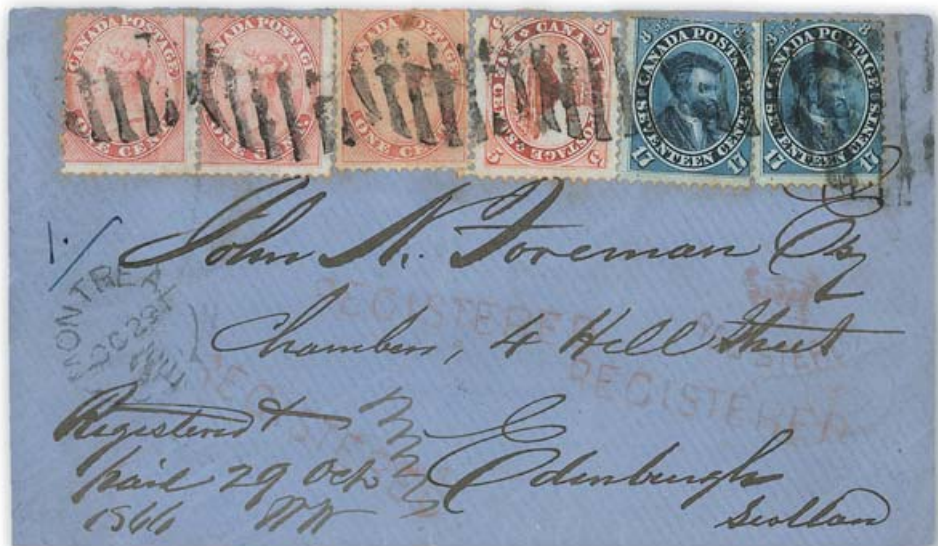 CANADA POSTAGE ONE CENT
CANADA POSTAGE ONE CENT
CANADA POSTAGE ONE CENT
5 CANADA POSTAGE 5 CENTS 5
8 CANADA POSTAGE 8 SEVENTEEN CENTS 17 17
8 CANADA POSTAGE 8 SEVENTEEN CENTS 17 17
1/
John N. Foreman Esq
MONTREAL
OC 29
REGISTERED
Chambers, 4 Hill Street
REGISTERED
REGISTERED
Registered &
paid 29 Oct
1866
Edinburgh
Scotlan